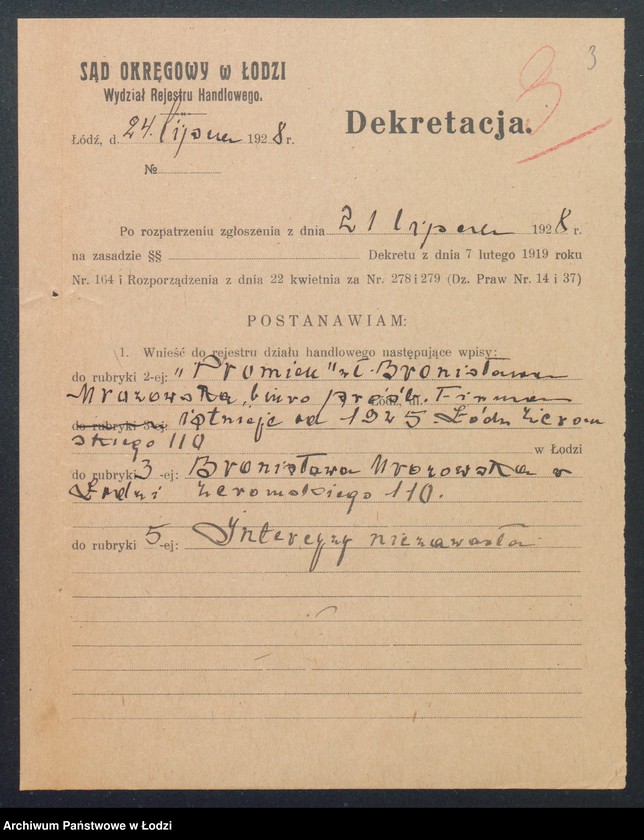 3
3
SĄD OKRĘGOWY w ŁODZI
Wydział Rejestru Handlowego.
Łódź, d. 24. lipca 1928 r.
Dekretacja.
№
Po rozpatrzeniu zgłoszenia z dnia 21 lipca 1928 r.
na zasadzie §§ Dekretu z dnia 7 lutego 1919 roku
Nr. 164 i Rozporządzenia z dnia 22 kwietnia za Nr. 278 i 279 (Dz. Praw Nr. 14 i 37)
POSTANAWIAM:
1. Wnieść do rejestru działu handlowego następujące wpisy:
do rubryki 2-ej: "Promień" wł. Bronisława
Mrozowska, biuro próśb. Firma
do rubryki istnieje od 1925. Łódź Żerom
skiego 110
w Łodzi
do rubryki 3-ej: Bronisława Mrozowska w
Łodzi Żeromskiego 110.
do rubryki 5-ej: Intercyzy niezawarła
Archiwum Państwowe w Łodzi